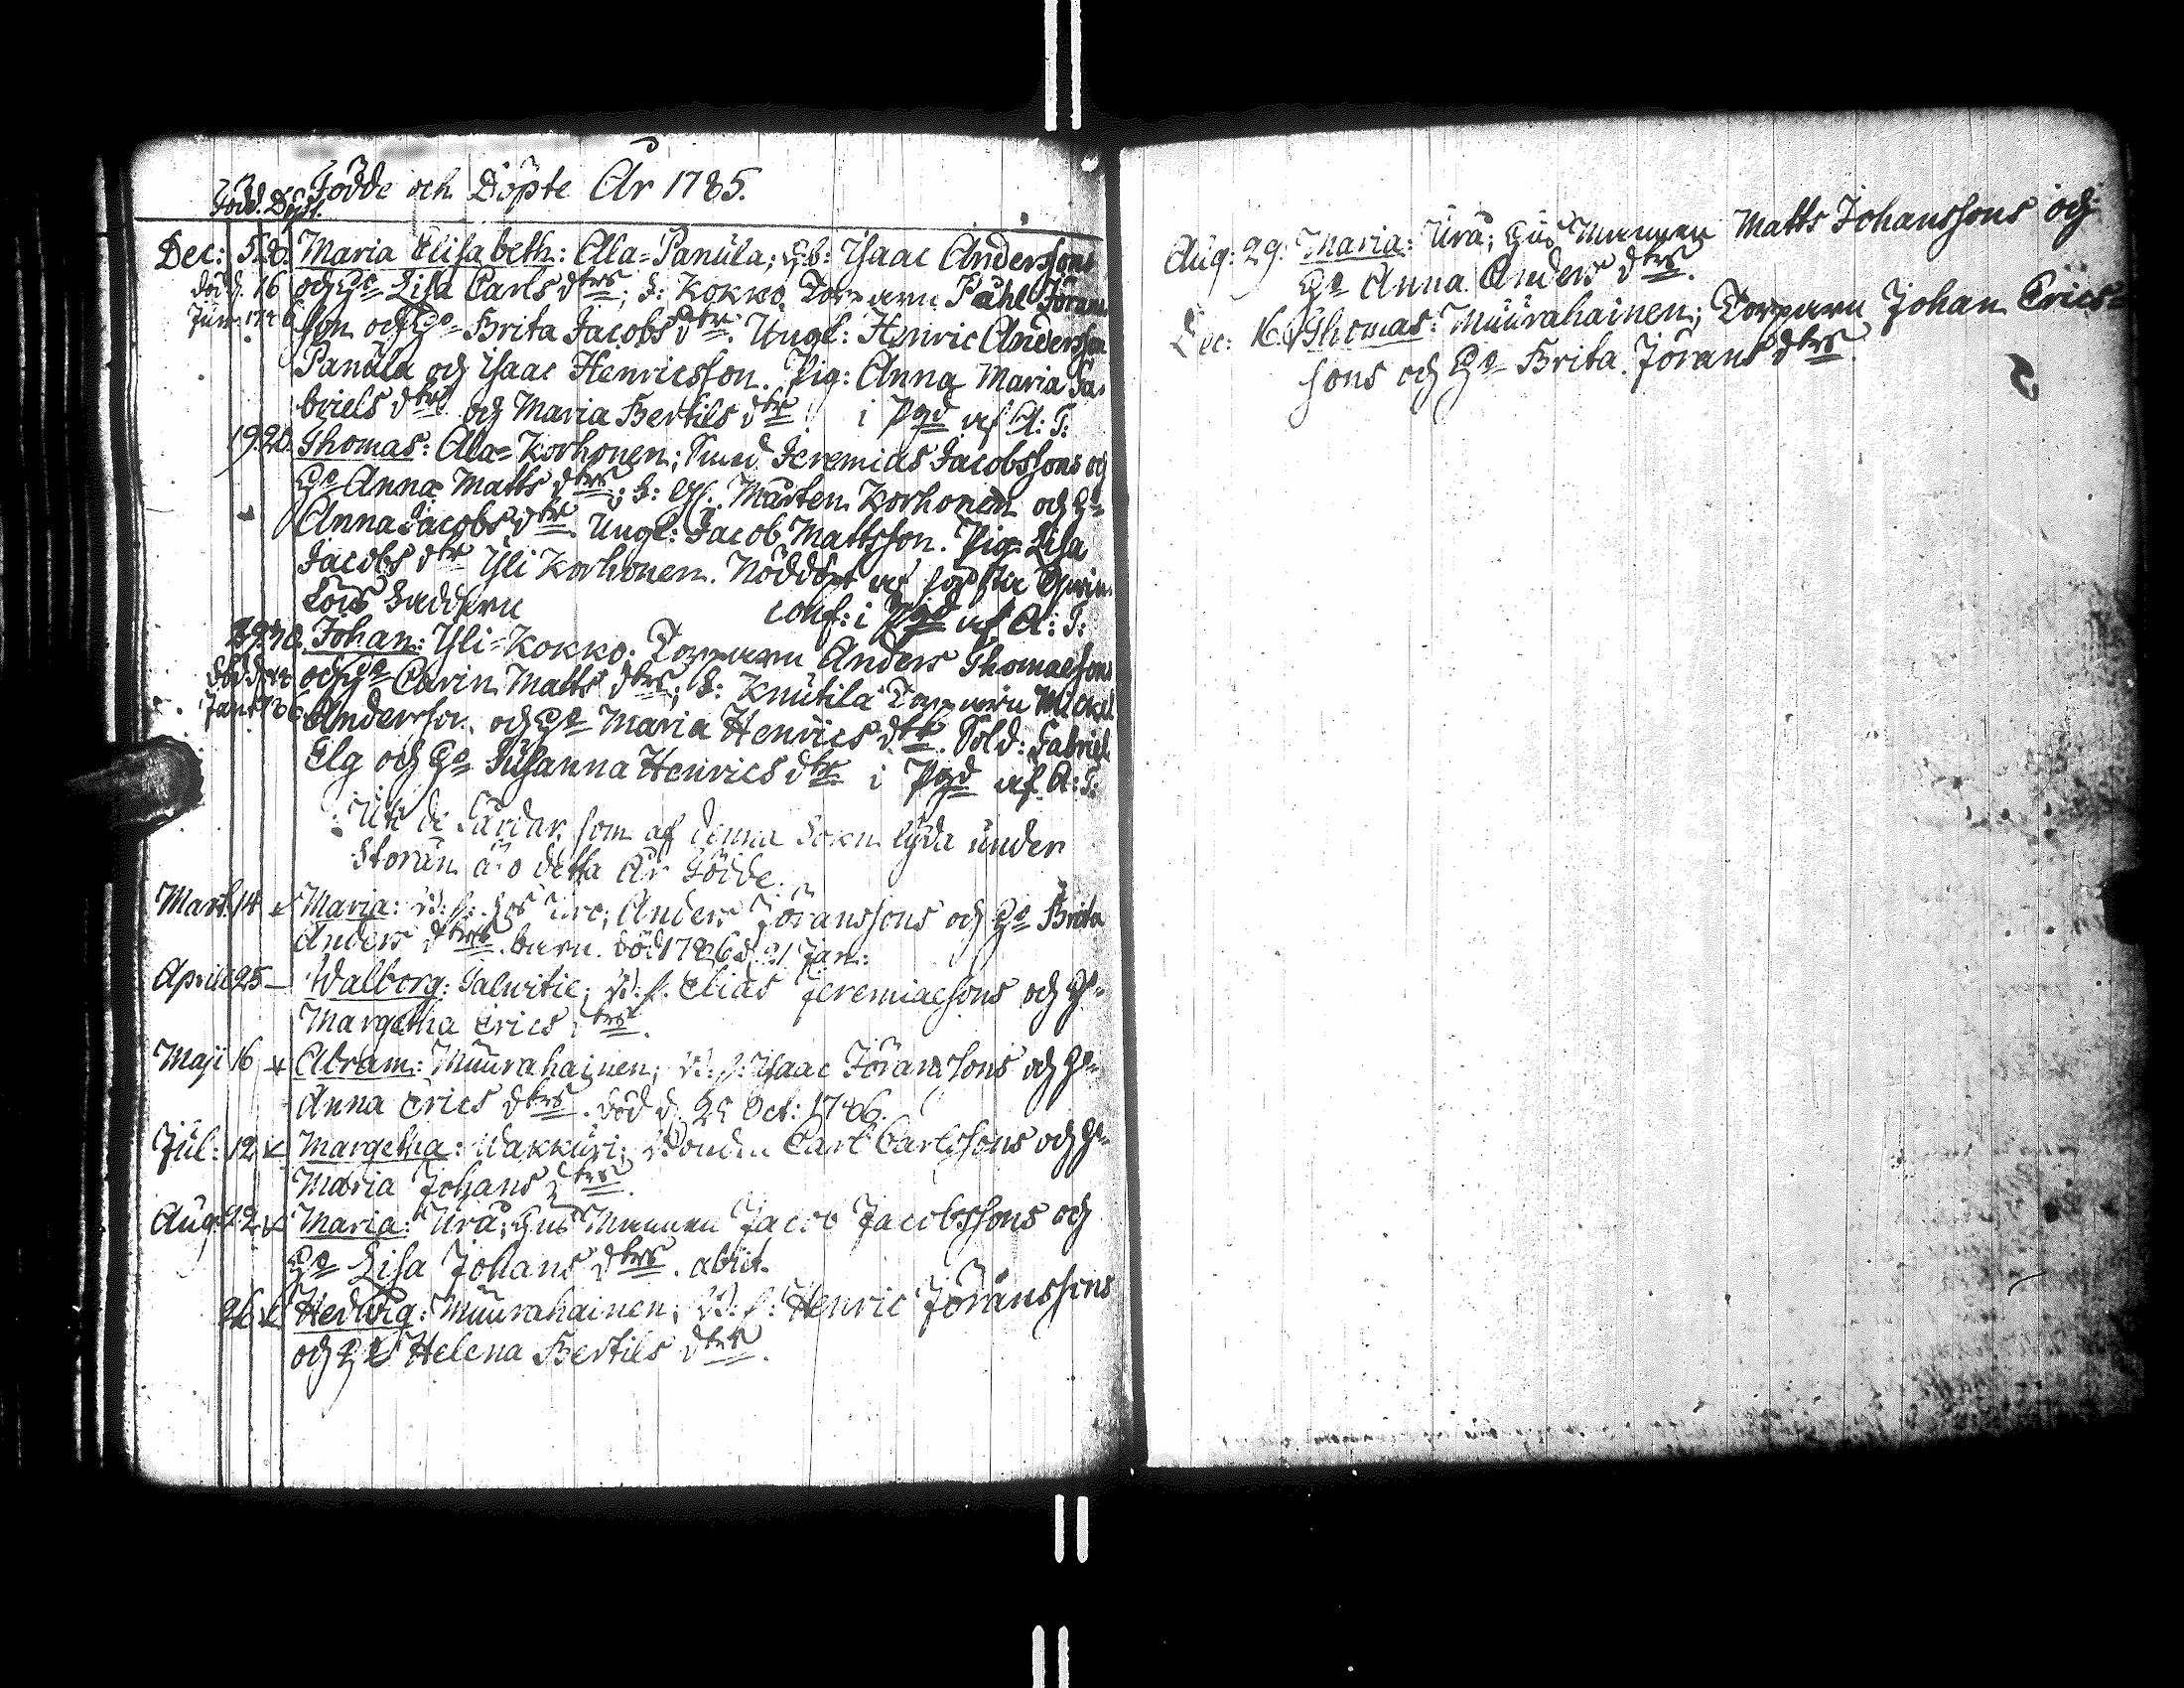 Födde och Döpte År 1785.
Föd. Döpt.
Dec: 5. 8. Maria Elisabeth: Ala=Panula; Isaac Anderssons
död d. 16 och H:o Lisa Carls dtrs; Kokko Torparen Påhl Jöran
son och H:o Brita Jacobs dtr. Ungk: Henric Andersson
Panula och Isaac Henricsson. Pig: Anna Maria Ga-
briels dtr och Maria Bertils dtr. i Pgd af A: T:
19. 20. Thomas: Ala=Korhonen; Jeremias Jacobssons och
H:o Anna Matts dtrs; Mårten Korhonen och H:o
Anna Jacobs dtr. Ungk: Jacob Mattsson. Pig: Lisa
Jacobs dtr Yli Korhonen. Nöddöpt af
conf: i Pgd af A: T:
29. 30. Johan: Yli=Kokko. Torparen Anders Thomaesons
och H:o Carin Matts dtrs; Knutila Torparen Mickel
Andersson och H:o Maria Henrics dtr. Sold: Gabriel
Elg och H:o Susanna Henrics dtr i Pgd af A: T:
Uti de Gårdar, som af denna Sokn lyda under
Storån äro detta År Födde.
Mart. 14 Maria: Anders Jöranssons och H:o Brita
Anders dtrs barn. död 1786 d. 21 Jan:
Aprilis 25 Walborg: Elias Jeremiaesons och H:o
Margetha Erics dtrs.
Maji 16 Abram: Muurahainen; Isaac Jöranssons och H:o
Anna Erics dtrs. död d. 25 Oct: 1786.
Jul: 12 Margetha: Wakkuri; Bonden Carl Carlssons och H:o
Maria Johans dtrs.
Aug: 22 Maria: Urå; Hus Mannen Jacob Jacobssons och
H:o Lisa Johans dtrs. abiit.
26 Hedwig: Muurahainen; Henric Jöranssons
och H:o Helena Bertils dtrs.
Aug: 29. Maria: Urå; Hus Mannen Matts Johanssons och
H:o Anna Anders dtrs.
Dec: 16. Thomas: Muurahainen; Torparen Johan Erics=
sons och H:o Brita Jörans dtrs.